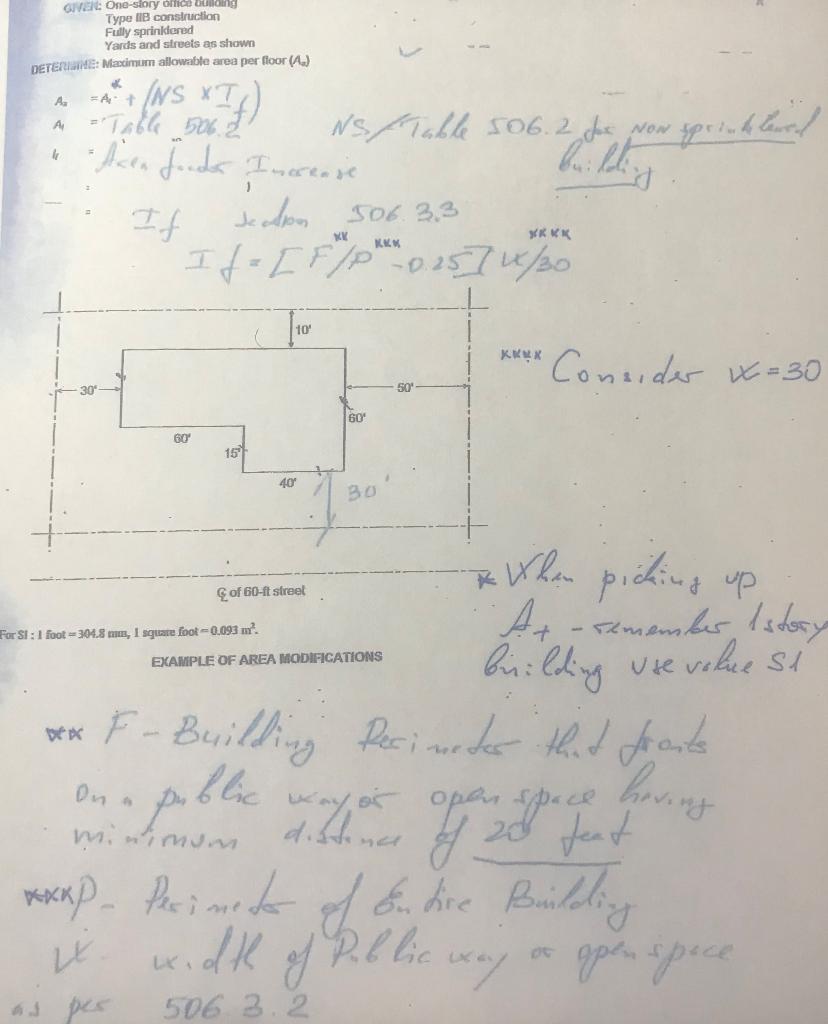 GIVEN: One-story office building
Type IIB construction
Fully sprinklered
Yards and streets as shown
DETERMINE: Maximum allowable area per floor (Aa)
Aa = At* + (NS x If)
At = Table 506.2 NS/Table 506.2 for NON sprinklered
If = Area factor Increase building
=
= If section 506.3.3
If = [F**/P*** - 0.25] W****/30
10'
30'
50'
**** Consider W = 30
60'
60'
15'
40'
30'
℄ of 60-ft street
* When picking up
At - remember 1 story
building use value S1
For SI : 1 foot = 304.8 mm, 1 square foot = 0.093 m².
EXAMPLE OF AREA MODIFICATIONS
** F - Building Perimeter that fronts
on a public way or open space having
minimum distance of 20 feet
*** P - Perimeter of Entire Building
W width of Public way or open space
as per 506.3.2